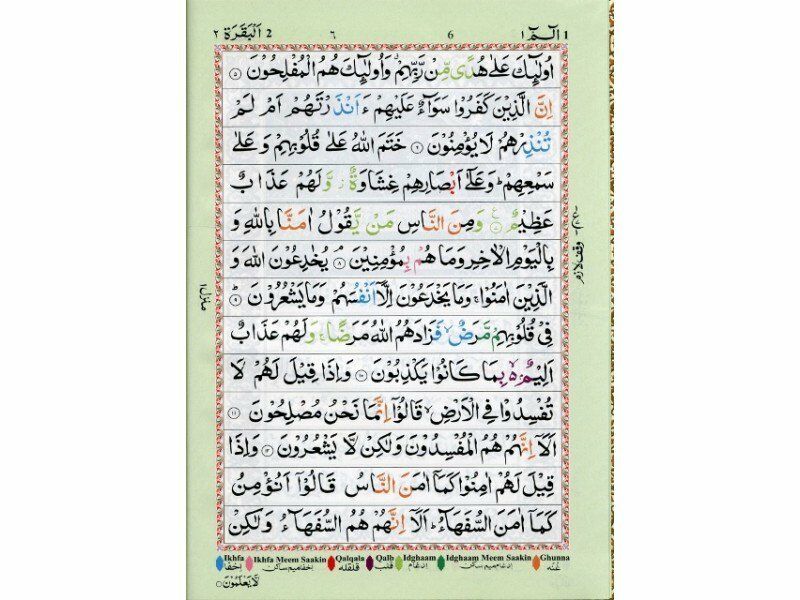 الٓمّٓ ١ 1 6 ٦ 2 اَلْبَقَرَة ٢
اُولٰٓئِكَ عَلٰى هُدًى مِّنْ رَّبِّهِمْ ۗ وَاُولٰٓئِكَ هُمُ الْمُفْلِحُوْنَ ۝٥
اِنَّ الَّذِيْنَ كَفَرُوْا سَوَآءٌ عَلَيْهِمْ ءَاَنْذَرْتَهُمْ اَمْ لَمْ
تُنْذِرْهُمْ لَا يُؤْمِنُوْنَ ۝٦ خَتَمَ اللّٰهُ عَلٰى قُلُوْبِهِمْ وَعَلٰى
سَمْعِهِمْ ؕ وَعَلٰٓى اَبْصَارِهِمْ غِشَاوَةٌ ز وَّلَهُمْ عَذَابٌ
عَظِيْمٌ ۝٧ ع وَمِنَ النَّاسِ مَنْ يَّقُوْلُ اٰمَنَّا بِاللّٰهِ وَ
بِالْيَوْمِ الْاٰخِرِ وَمَا هُمْ بِمُؤْمِنِيْنَ ۝٨ م يُخٰدِعُوْنَ اللّٰهَ وَ
الَّذِيْنَ اٰمَنُوْا ۚ وَمَا يَخْدَعُوْنَ اِلَّاۤ اَنْفُسَهُمْ وَمَا يَشْعُرُوْنَ ۝٩ ؕ
فِيْ قُلُوْبِهِمْ مَّرَضٌ ۙ فَزَادَهُمُ اللّٰهُ مَرَضًا ۚ وَلَهُمْ عَذَابٌ
اَلِيْمٌۢ ۙ۬ بِمَا كَانُوْا يَكْذِبُوْنَ ۝١٠ وَاِذَا قِيْلَ لَهُمْ لَا
تُفْسِدُوْا فِي الْاَرْضِ ۙ قَالُوْٓا اِنَّمَا نَحْنُ مُصْلِحُوْنَ ۝١١
اَلَاۤ اِنَّهُمْ هُمُ الْمُفْسِدُوْنَ وَلٰكِنْ لَّا يَشْعُرُوْنَ ۝١٢ وَاِذَا
قِيْلَ لَهُمْ اٰمِنُوْا كَمَاۤ اٰمَنَ النَّاسُ قَالُوْٓا اَنُؤْمِنُ
كَمَاۤ اٰمَنَ السُّفَهَآءُ ؕ اَلَاۤ اِنَّهُمْ هُمُ السُّفَهَآءُ وَلٰكِنْ
وقف لازم
منزل ١
Ikhfa Ikhfa Meem Saakin Qalqala Qalb Idghaam Idghaam Meem Saakin Ghunna
إخفا إخفا ميم ساكن قلقله قلب إدغام إدغام ميم ساكن غنّه
لَّا يَعْلَمُوْنَ